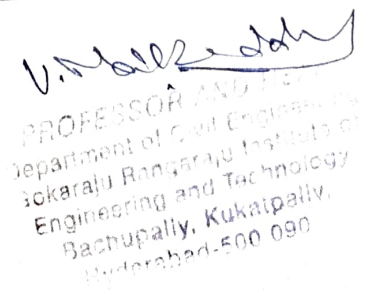 PROFESSOR AND
Department of Civil Engineering
Gokaraju Rangaraju Institute of
Engineering and Technology
Bachupally, Kukatpally,
Hyderabad-500 090